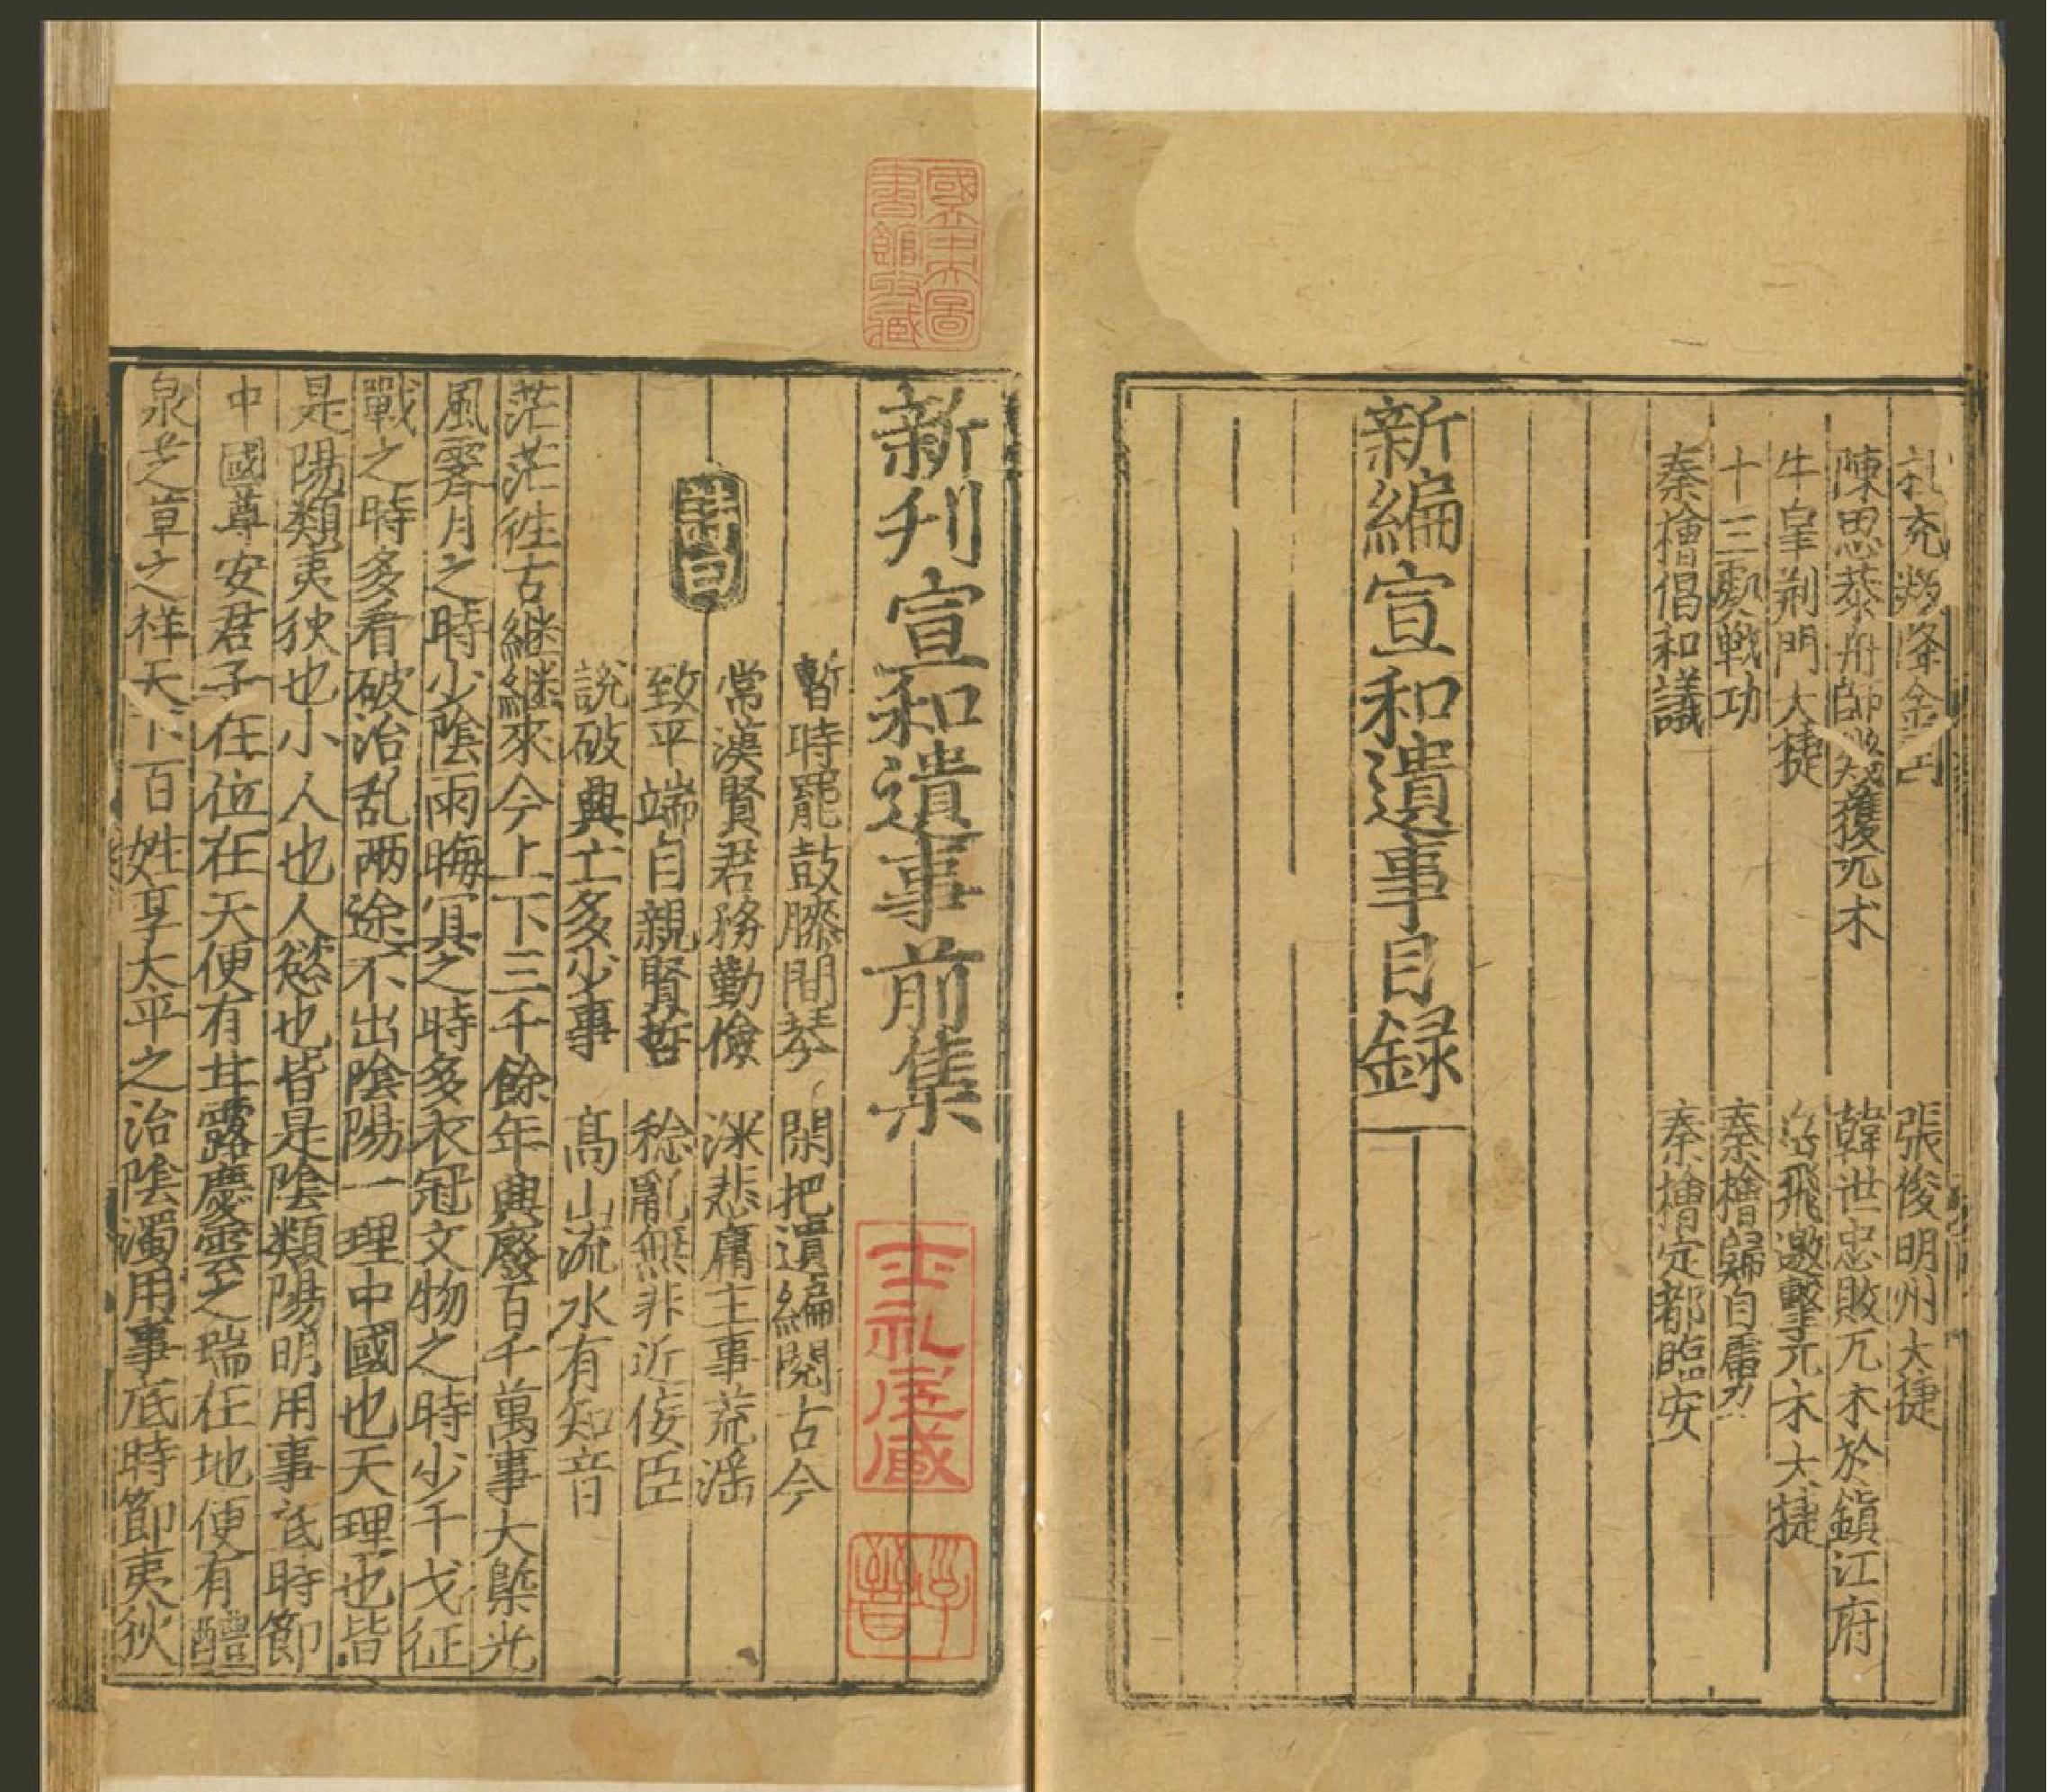 孔彥舟降金
張俊明州大捷
陳思恭舟師敗獲兀术
韓世忠敗兀术於鎮江府
牛皐荆門大捷
岳飛邀擊兀术大捷
十三處戰功
秦檜歸自虜
秦檜倡和議
秦檜定都臨安
新編宣和遺事目録
國立中央圖
書館收藏
新刋宣和遺事前集
士礼居藏
詩曰
暫時罷鼓膝間琴
閑把遺編閱古今
常漢賢君務勤儉
深悲庸主事荒滛
致平端自親賢哲
稔亂無非近佞臣
說破興亡多少事
高山流水有知音
茫茫徃古継継來今上下三千餘年興廢百千萬事大槩光
風霽月之時少陰雨晦冥之時多衣冠文物之時少干戈征
戰之時多看破治乱兩途不出陰陽一理中國也天理也皆
是陽類夷狄也小人也人慾也皆是陰類陽明用事底時節
中國尊安君子在位在天便有甘露慶雲之瑞在地便有醴
泉芝草之祥天下百姓享太平之治陰濁用事底時節夷狄